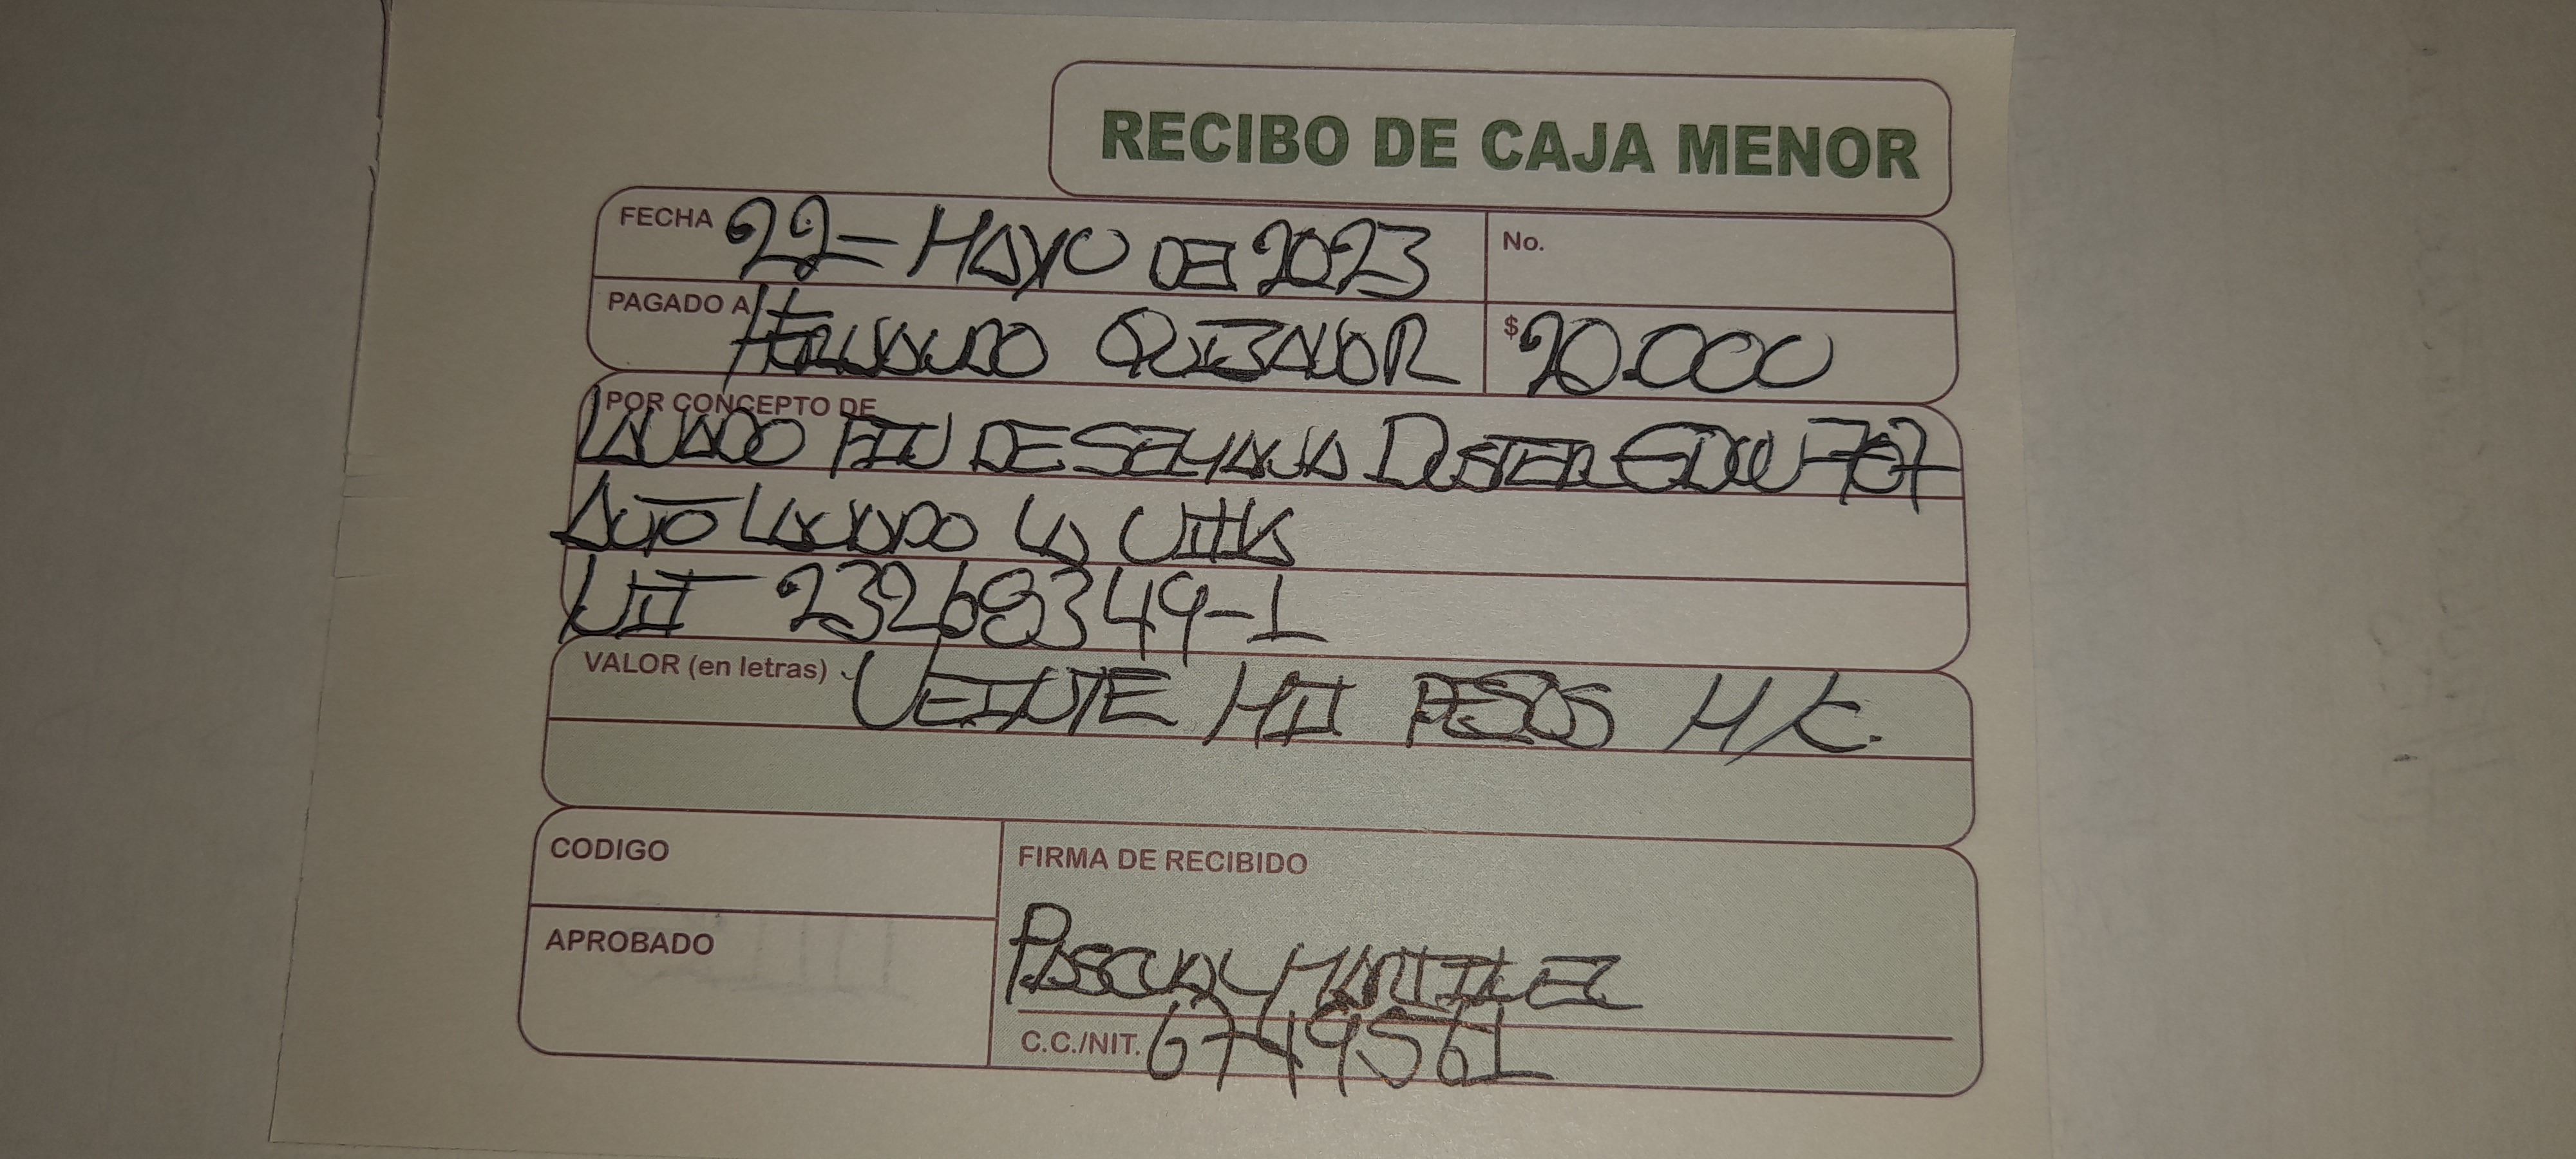 RECIBO DE CAJA MENOR
FECHA 22-MAYO DE 2023 No.
PAGADO A HERNANDO QUIBANOR $ 20.000
POR CONCEPTO DE
LAVADO FIN DE SEMANA DUSTER 767
AUTO LAVADO LA
NIT 23268349-1
VALOR (en letras) VEINTE MIL PESOS M/C.
CODIGO
FIRMA DE RECIBIDO
APROBADO
PASCUAL MARTINEZ
C.C./NIT. 6749561